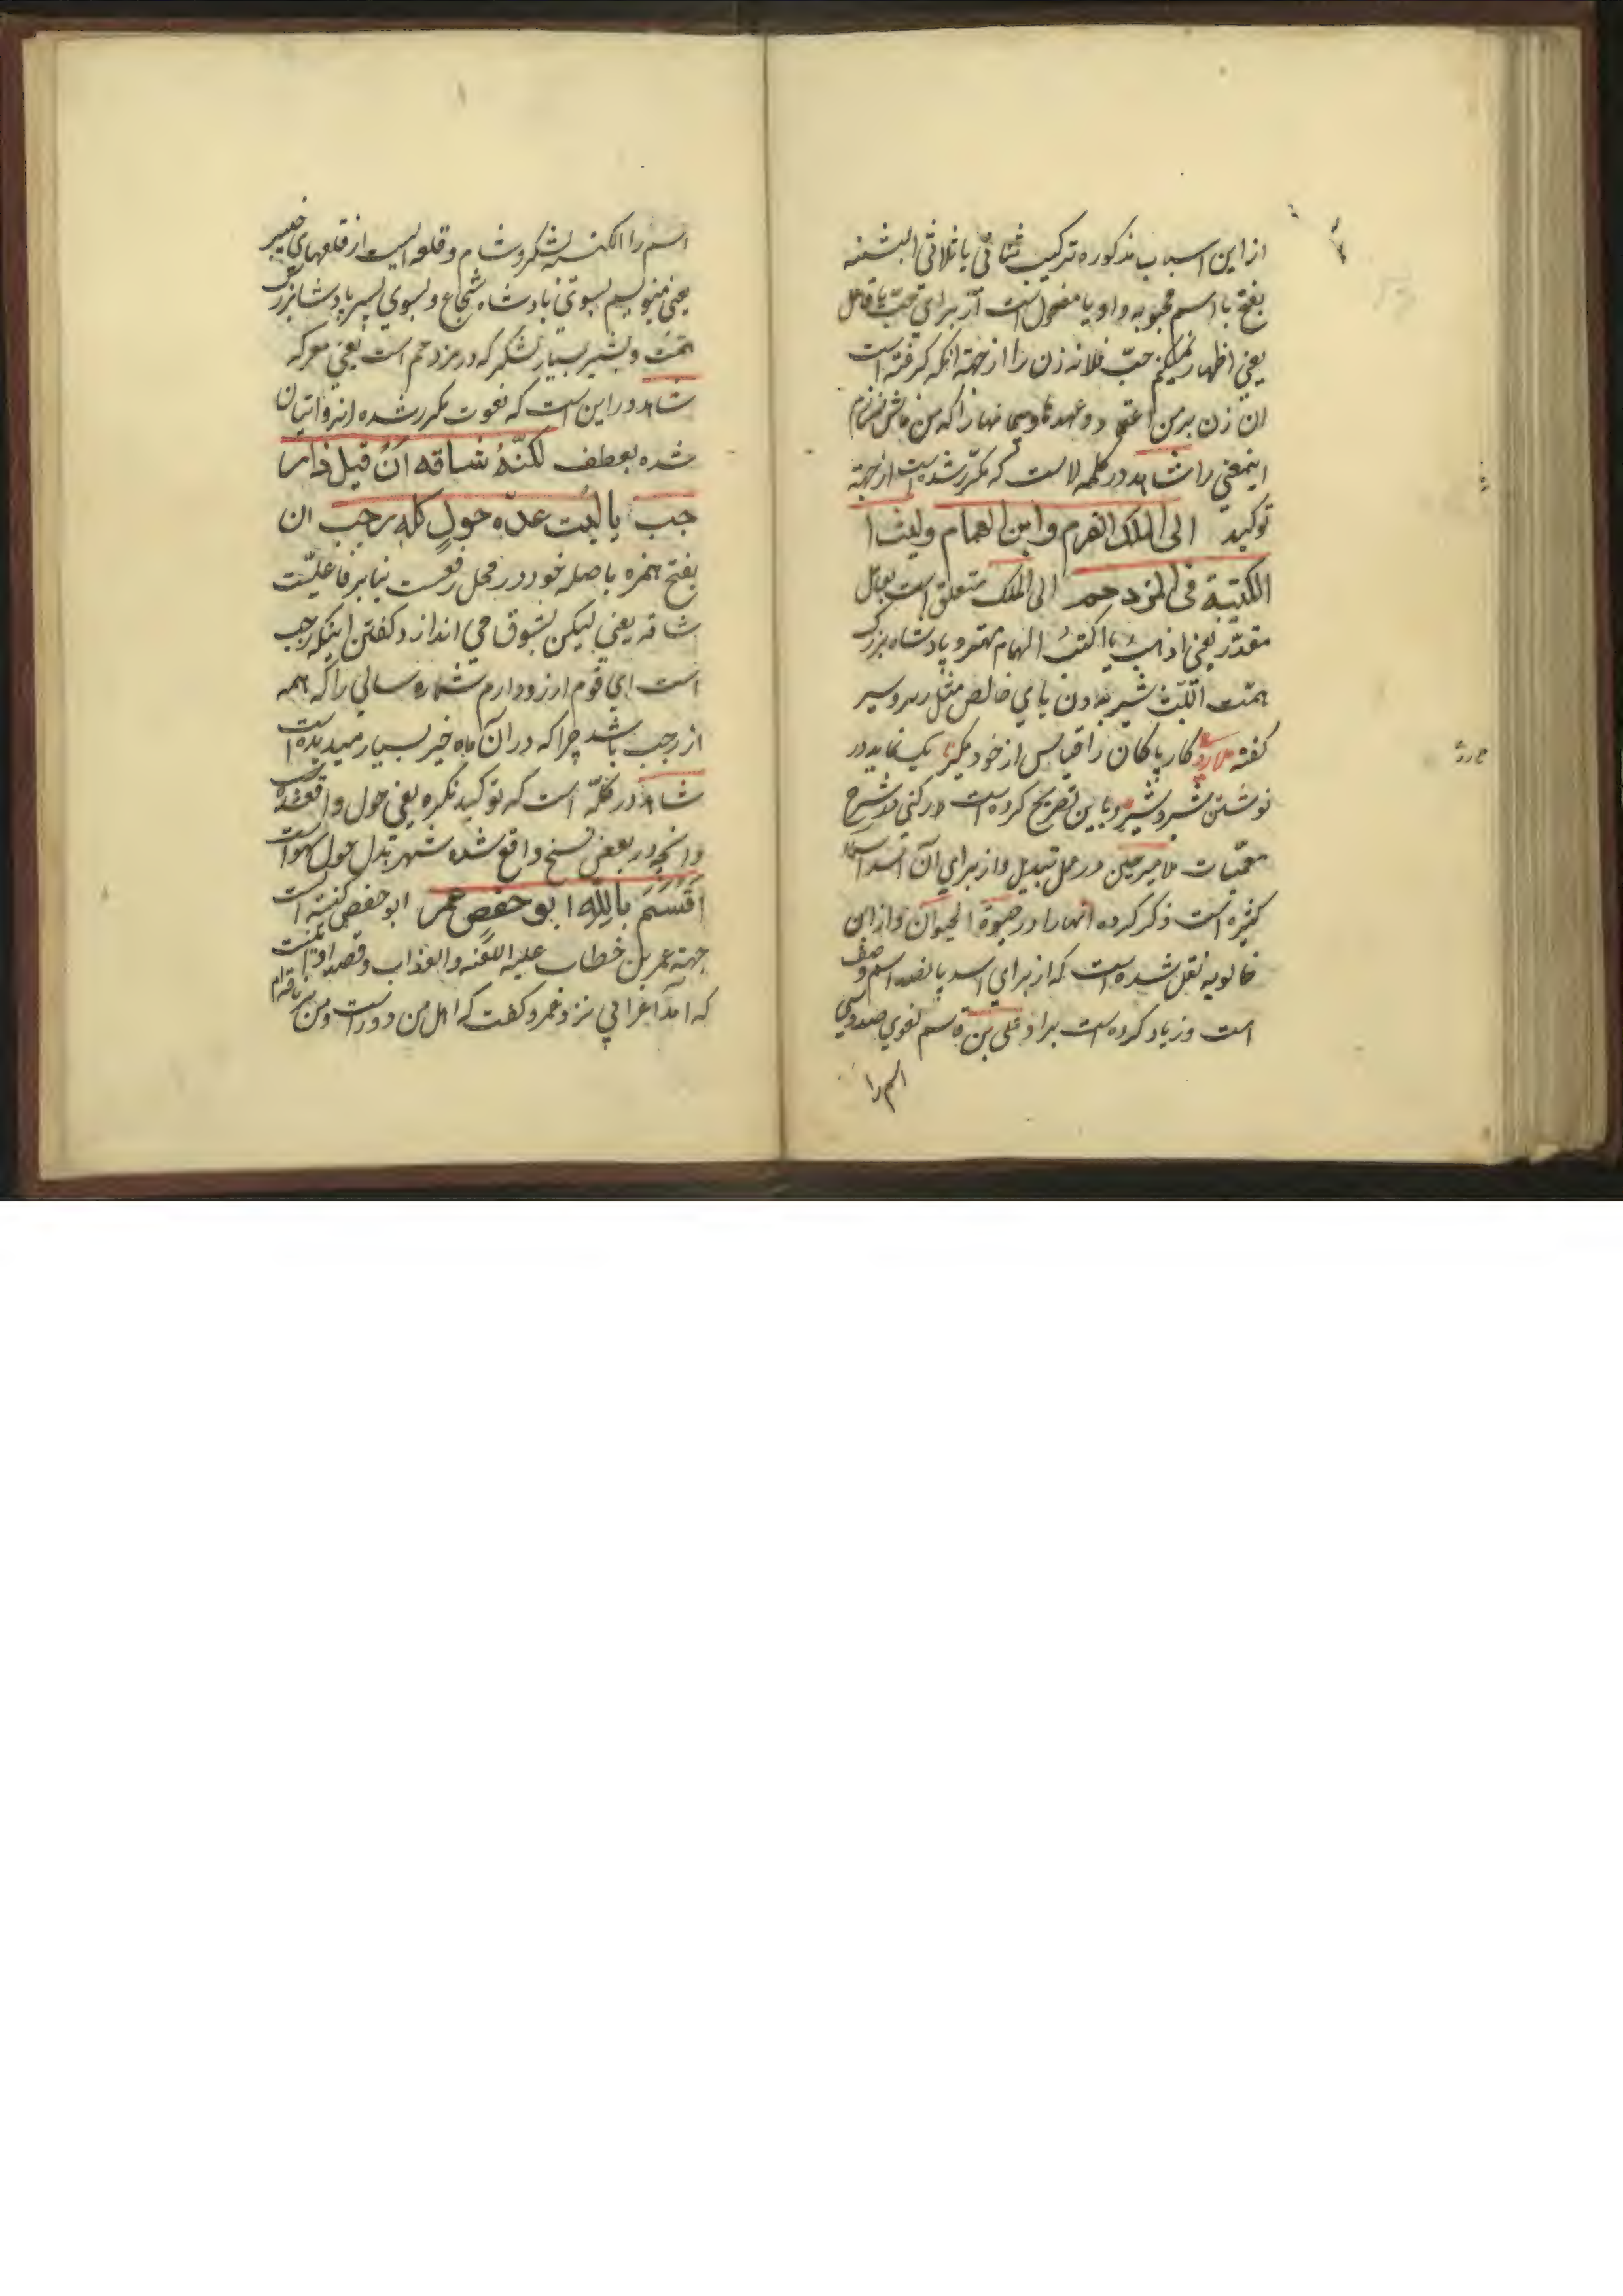 از این اسباب مذکوره ترکیب ثنائی یا ثلاثی البثنه
بفتح با اسم محبوبه و او یا مفعول است از برای حبّ یا فاعل
یعنی اظهار نمیکنم حبّ فلانه زن را از جهة انکه کرفته است
ان زن بر من اعتماد و عهدها و پیمانها را که من فاش نسازم
اینمعنی را شاهد در کلمه لا است که مکرّر شده است از جهة
توکید الی الملک القرم وابن الهمام ولیث ا
الکتیبة فی المزدحم الی الملک متعلق است بعامل
مقدّر یعنی اذهب یا اکتب الهمام مهتر و پادشاه بزرک
همّت اللّیث شیر بدون یای خالص مثل
کفته کار پاکان را قیاس از خود مکیر یک نماید در
نوشتن شیر و شیر و باین تصریح کرده است در شرح
معمّیات ملا میر حسین در عمل تبدیل و از برای آن اسد اسماء
کثیره است ذکر کرده انها را در حیوة الحیوان و از ابن
خالویه نقل شده است که از برای اسد پانصد اسم و صف
است و زیاد کرده است براو علی بن قاسم لغوی صد و سی
اسم را
اسم را الکتیبه لشکر و شام و قلعه ایست از قلعهای خیبر
یعنی منسوبم بسوی پادشاه شجاع و بسوی پسر پادشاه بزرک
همّت و بشیر بسیار لشکر که در مزدحم است یعنی معرکه
شاهد در این است که نعوت مکرر شده اند و اتیان
شده بعطف لکنّهُ شاقه اَنْ قیل ذا ر
جب یا لیت عدّه حولٍ کله رجب ان
بفتح همزه با صله خود در محل رفعست بنابر فاعلیّت
شاقه یعنی لیکن بشوق می اندازد کفتن اینکه رجب
است ای قوم ارزو دارم شماره سالی را که همه
از رجب باشد چرا که در آن ماه خیر بسیار میدیده است
شاهد در کلّه است که توکید نکره یعنی حول واقعشده
و انچه در بعض نسخ واقع شده شهر بدل حول سهو است
اقسَمَ باللهِ ابو حفصٍ عمر ابو حفص کنیه است
جهة عمر بن خطاب علیه اللعنه والعذاب و قصه او اینست
که آمد اعرابی نزد عمر و کفت که اهل من دور است و من بر ناقه‌ام